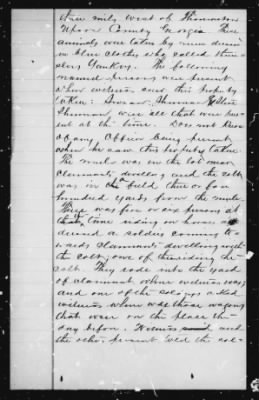 three miles west of Thomaston
Upson County Georgia These
animals were taken by men dressed
in blue clothes who called them
selves Yankees. The following
named persons were present
when witness saw this property
taken:
Thurman were all that were pre
sent at the time. Does not know
of any Officer being present,
when he saw this property taken
The mule was in the lot near
claimants dwelling and the colt
was in the field three or four
hundred yards from the mule.
There was five or six persons at
that time riding on horses and
dressed as soldiers coming to
wards claimants dwelling with
the colt; one of them riding the
colt. They rode into the yard
of claimant where witness was;
and one of the soldiers asked
witness where was those wagons
that were on the place the
day before. Witness and
the other present told the sol-